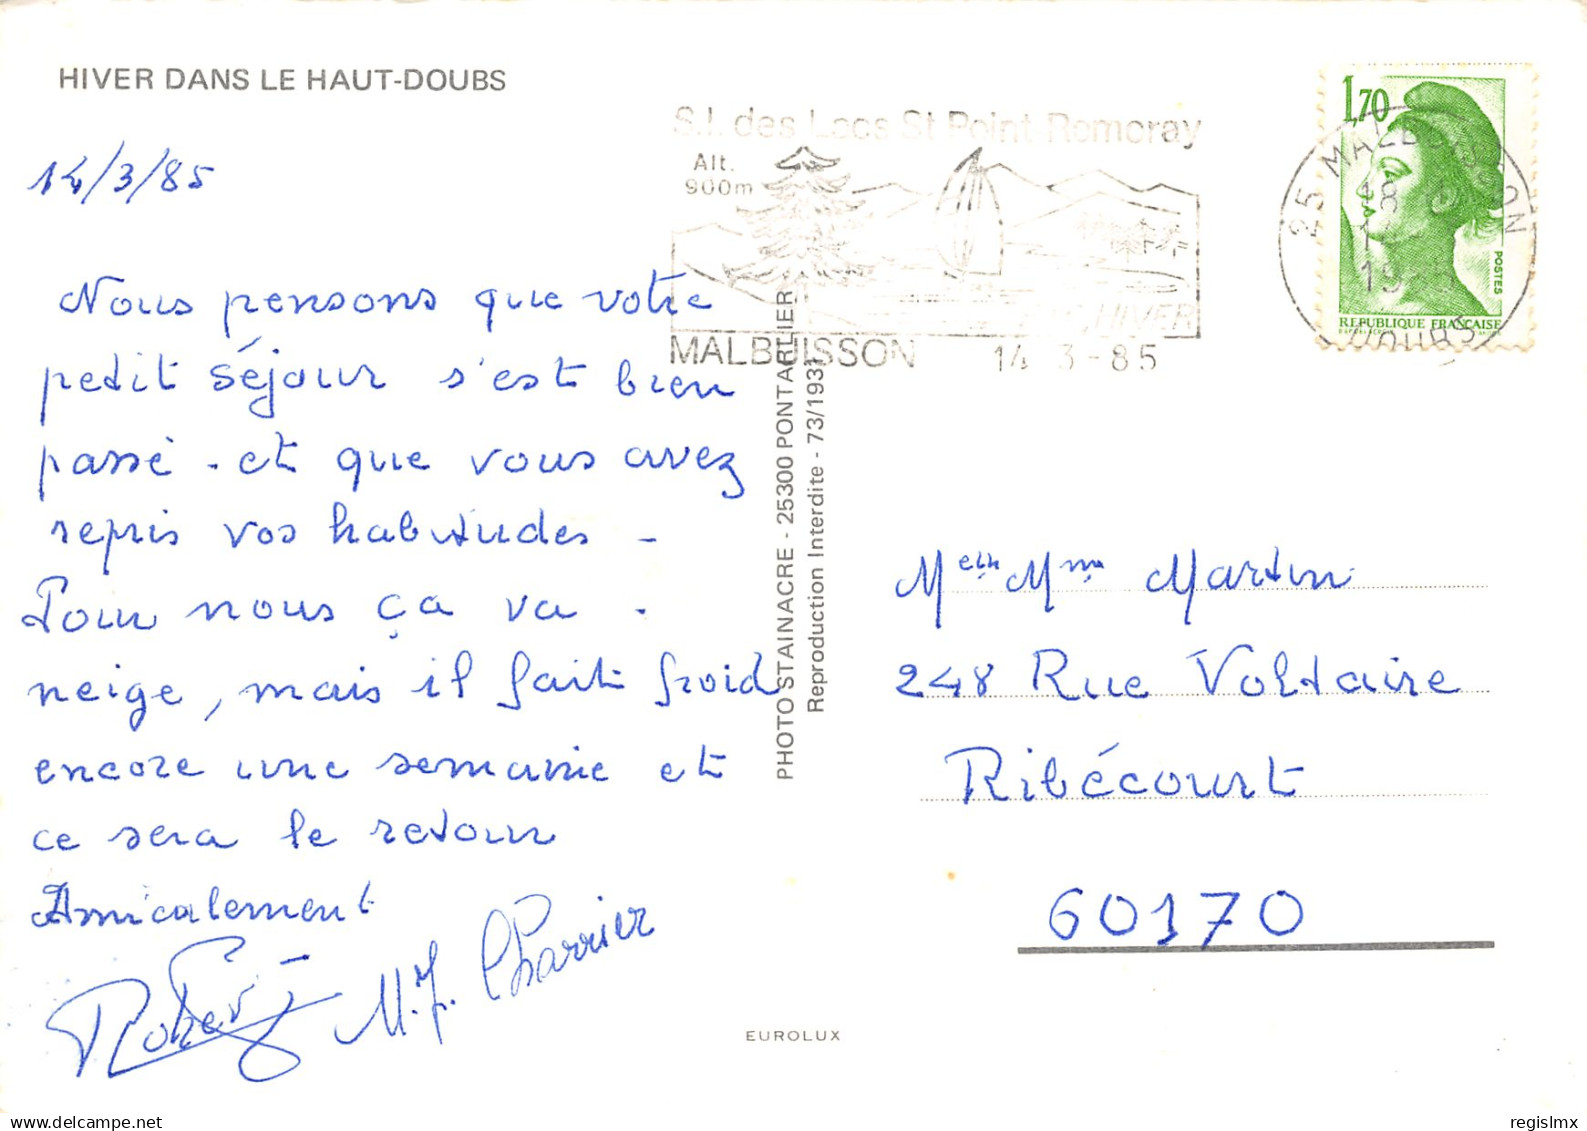 HIVER DANS LE HAUT-DOUBS
14/3/85
Nous pensons que votre
petit séjour s'est bien
passé - et que vous avez
repris vos habitudes -
Pour nous ça va -
neige, mais il fait froid
encore une semaine et
ce sera le retour
Amicalement
Robert M.J. Charrier
S.I. des Lacs St Point Remoray
Alt.
900m
HIVER
MALBUISSON 14 3 - 85
PHOTO STAINACRE - 25300 PONTARLIER
Reproduction Interdite - 73/193
1,70
POSTES
REPUBLIQUE FRANÇAISE
25 MALBUISSON
18
14
19
DOUBS
M et Mme Martin
248 Rue Voltaire
Ribécourt
60170
EUROLUX
regislmx